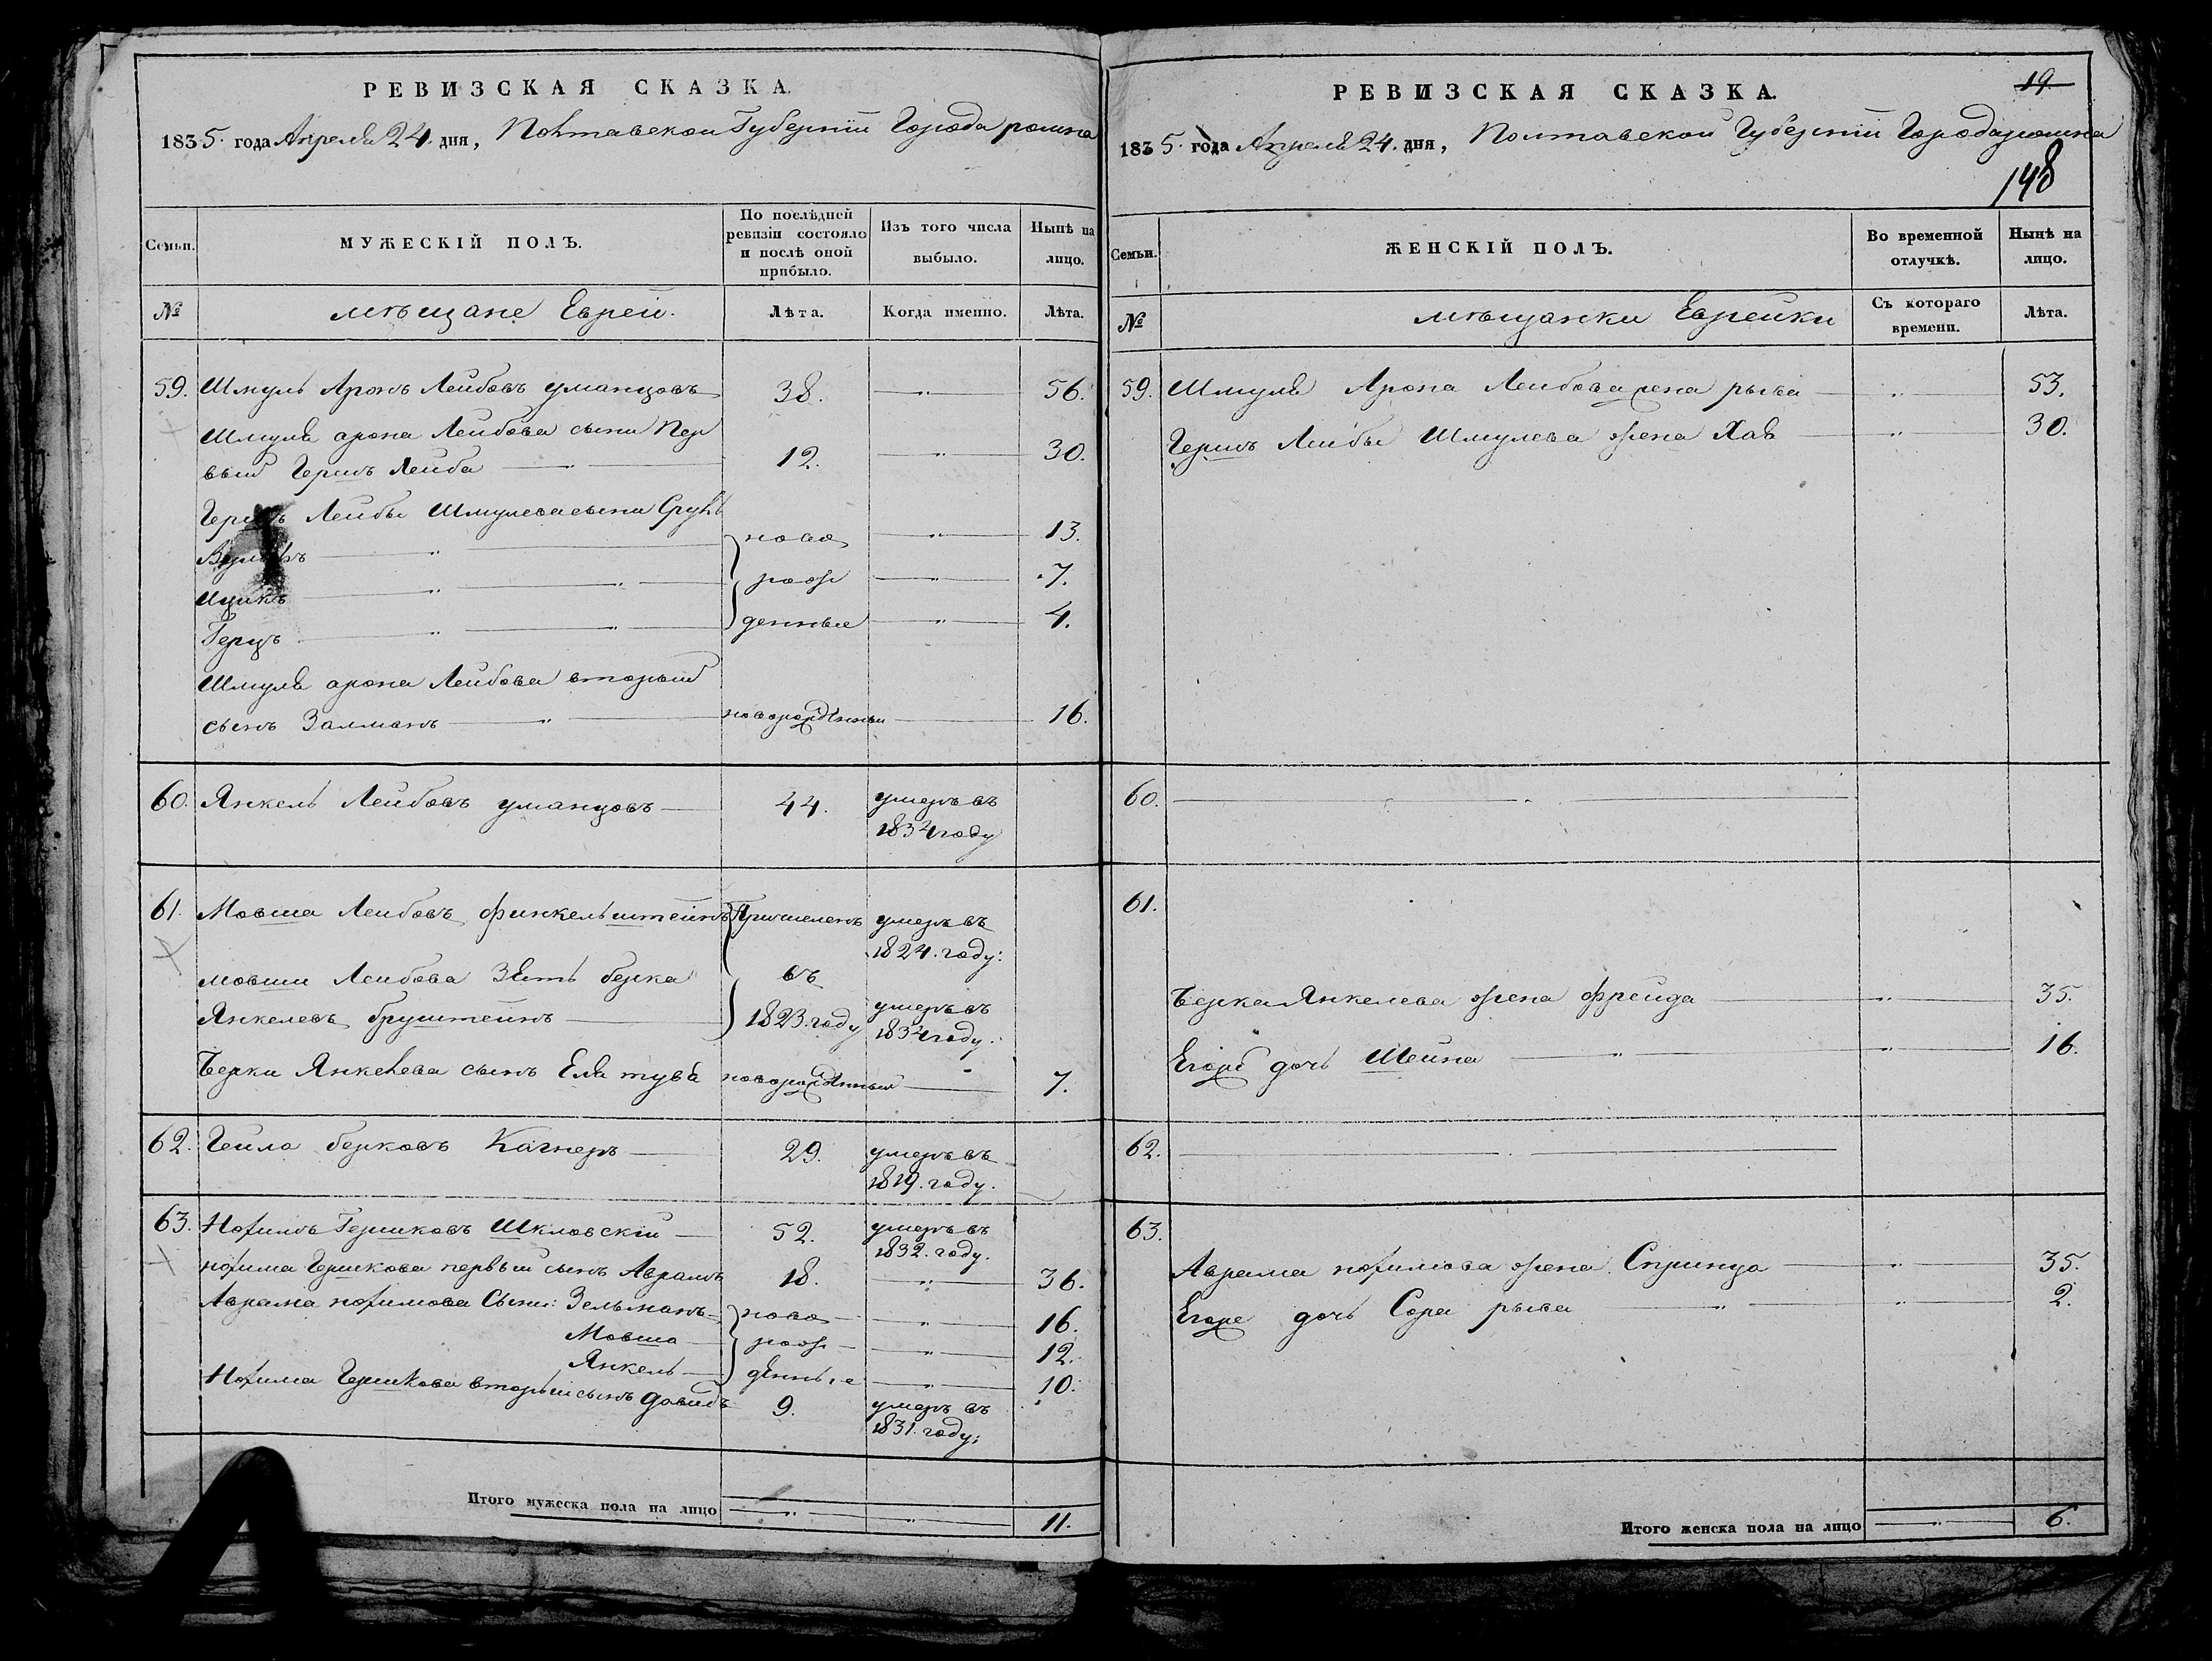 РЕВИЗСКАЯ СКАЗКА.
1835. года Апреля 24. дня, Полтавской Губернїи Города ромна
Семьи.
МУЖЕСКІЙ ПОЛЪ.
По послѣдней ревизіи состояло и послѣ оной прибыло.
Изъ того числа выбыло.
Нынѣ на лицо.
№
мѣщане Евреи.
Лѣта.
Когда именно.
Лѣта.
59. Шмуль Аронъ Лейбовъ уманцовъ 38. 56.
Шмуля арона Лейбова сыни Пер
вый Гершъ Лейба 12. 30.
Гершъ Лейбы Шмулева сыни Сруль ново 13.
рож 7.
Ицикъ
Герцъ денные 4.
Шмуля арона Лейбова вторый
сынъ Залманъ новорожденный 16.
60. Янкель Лейбовъ уманцовъ 44. умеръ въ
1834 году
61. Мовша Лейбовъ финкельштейнъ Причисленъ умеръ въ
1824. году:
мовши Лейбова Зять берка въ
Янкелевъ бруштейнъ 1823. году умеръ въ
1834 году.
Берки Янкелева сынъ Еля тувья новорожденный 7.
62. Гейло берковъ Кагнеръ 29. умеръ въ
1819. году.
63. Нохимъ Гершковъ Шкловскій 52. умеръ въ
1832. году.
нохима Гершкова первый сынъ Аврамъ 18. 36.
Аврама нохимова Сыни: Зельманъ ново 16.
Мовша рож 12.
Янкель денные 10.
Нохима Гершкова вторый сынъ довидъ 9. умеръ въ
1831. году:
Итого мужеска пола на лицо 11.
РЕВИЗСКАЯ СКАЗКА.
19.
1835. года Апреля 24. дня, Полтавской Губернїи Города ромна
148
Семьи.
ЖЕНСКІЙ ПОЛЪ.
Во временной отлучкѣ.
Нынѣ на лицо.
№
мѣщанки Еврейки
Съ котораго времени.
Лѣта.
59. Шмуля Арона Лейбова жена рыва 53.
Гершъ Лейбы Шмулева жена Хая 30.
60.
61.
Берка Янкелева жена фрейда 35.
Егоже дочь Шейна 16.
62.
63.
Аврама нохимова жена Сприндза 35.
Егоже дочь Сора рыва 2.
Итого женска пола на лицо 6.